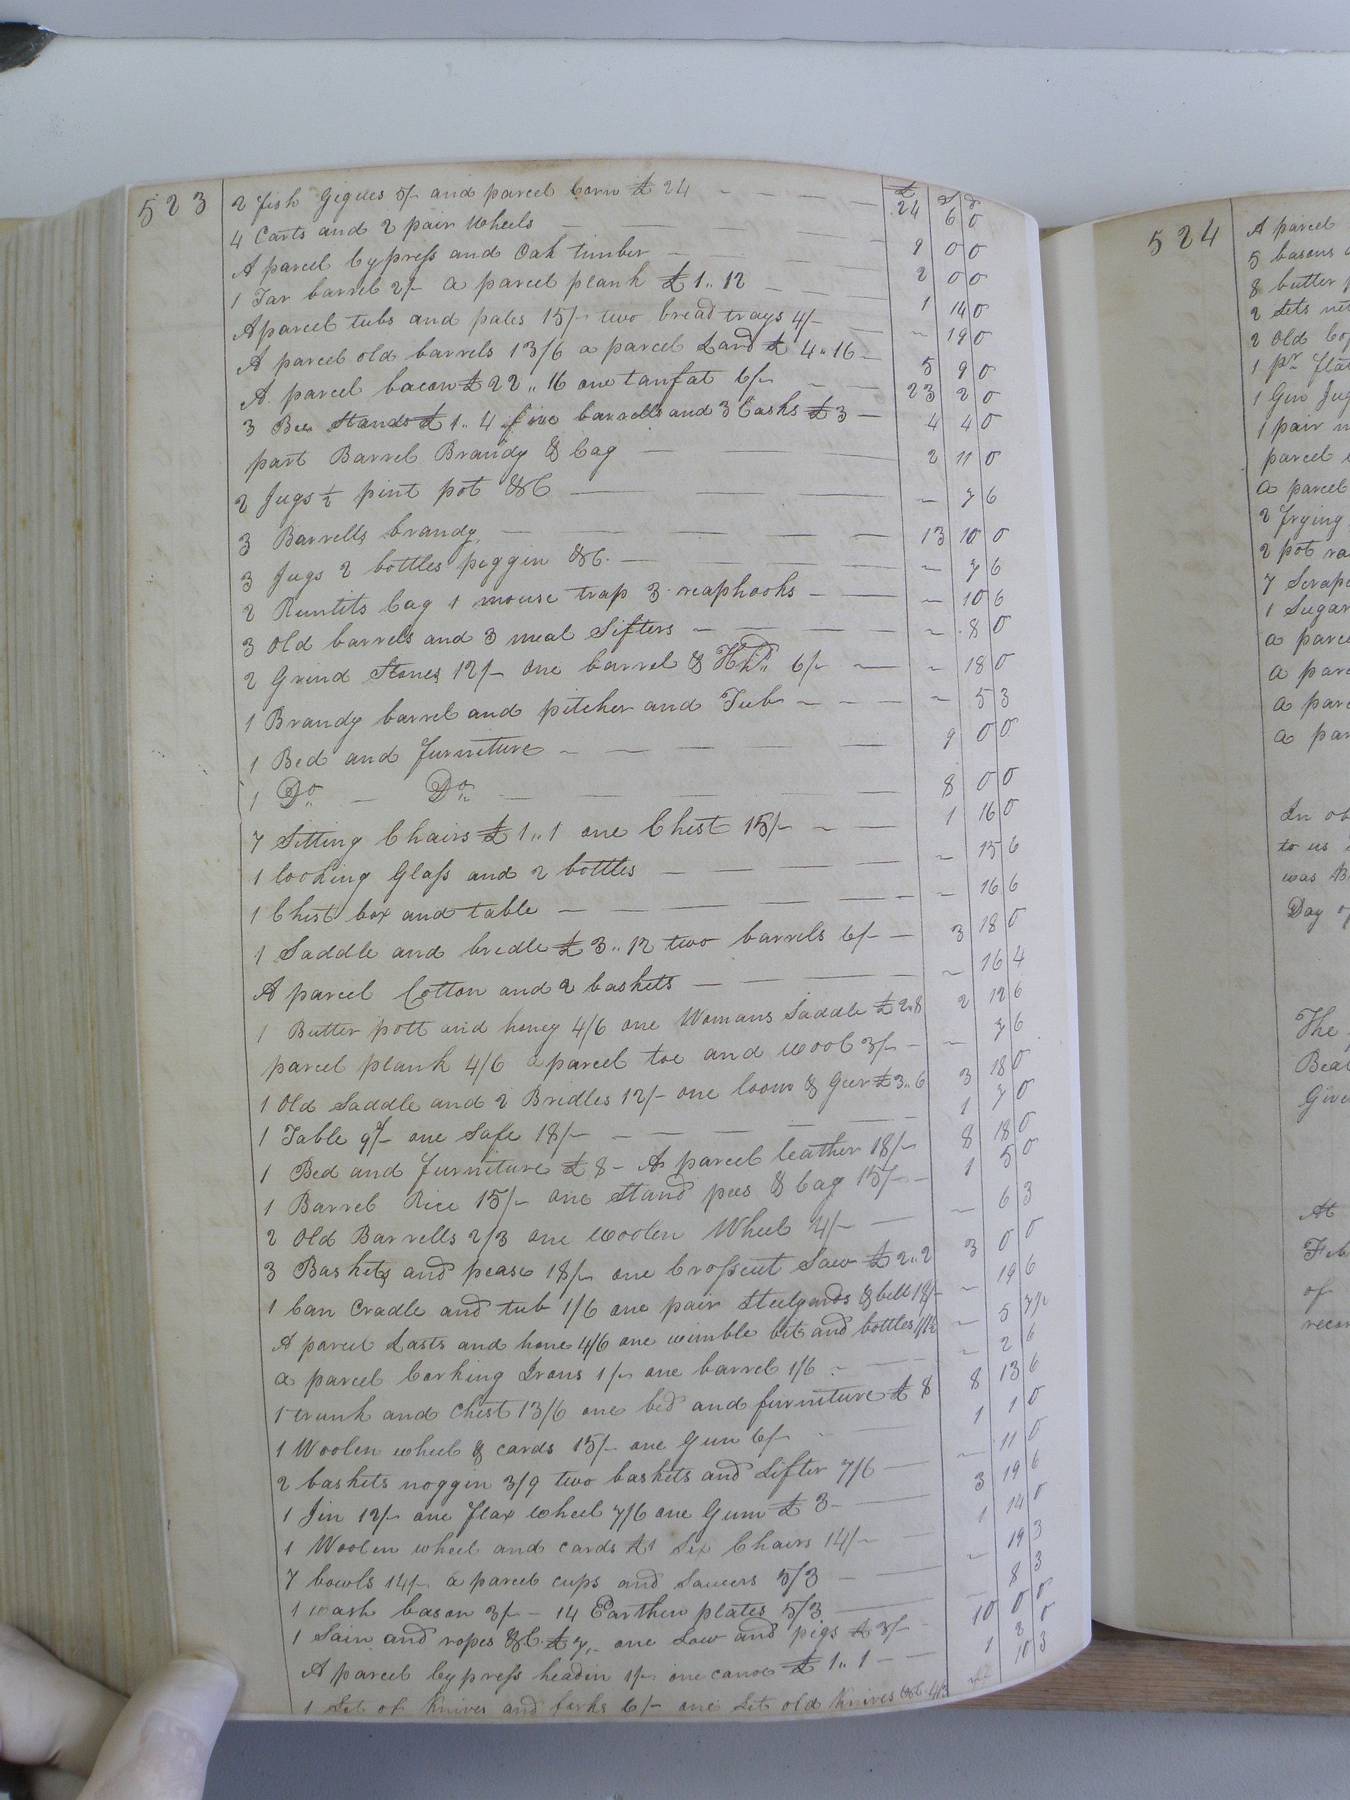 523
£ s d
2 fish Gigues 5/- and parcel Corn £ 24 24 6 0
4 Carts and 2 pair Wheels 9 0 0
A parcel Cypress and Oak timber 2 0 0
1 Tar barrel 2/- a parcel plank £ 1.. 12 1 14 0
A parcel tubs and pales 15/- two bread trays 4/- - 19 0
A parcel old barrels 13/6 a parcel Lard £ 4.. 16 5 9 0
A parcel bacon £ 22.. 16 one tanfat 6/- 23 2 0
3 Bee Stands £ 1.. 4 five baralls and 3 Casks £ 3 4 4 0
part Barrel Brandy & Cag 2 11 0
2 Jugs ½ pint pot &C - 7 6
3 Barrells brandy 13 10 0
3 Jugs 2 bottles piggin &C. - 7 6
2 Runlits Cag 1 mouse trap 3 reaphooks - 10 6
3 Old barrels and 3 meal Sifters - 8 0
2 Grind Stones 12/- one barrel & Hhd.. 6/- - 18 0
1 Brandy barrel and pitcher and Tub - 5 3
1 Bed and furniture 9 0 0
1 Do Do 8 0 0
7 Sitting Chairs £ 1.. 1 one Chest 15/- 1 16 0
1 looking Glass and 2 bottles - 15 6
1 Chest box and table - 16 6
1 Saddle and bredle £ 3.. 12 two barrels 6/- 3 18 0
A parcel Cotton and 2 baskets - 16 4
1 Butter pott and honey 4/6 one Womans Saddle £ 2..8 2 12 6
parcel plank 4/6 a parcel toe and wool 3/- - 7 6
1 Old Saddle and 2 Bridles 12/- one loom & Geer £ 3.. 6 3 18 0
1 Table 9/- one Safe 18/- 1 7 0
1 Bed and furniture £ 8 - A parcel leather 18/- 8 18 0
1 Barrel Rice 15/- one Stand pees & Cag 15/- 1 5 0
2 Old Barrells 2/3 one woolen Wheel 4/- - 6 3
3 Baskets and pease 18/- one Crosscut Saw £ 2.. 2 3 0 0
1 Can Cradle and tub 1/6 one pair Steelyards & bell 18/- - 19 6
A parcel Lasts and hone 4/6 one wimble bit and bottles 1/1½ - 5 7½
a parcel Corking Irons 1/- one barrel 1/6 - 2 6
1 trunk and Chest 13/6 one bed and furniture £ 8 8 13 6
1 Woolen wheel & cards 15/- one Gun 6/- 1 1 0
2 baskets noggin 3/9 two baskets and Sifter 7/6 - 11 0
1 Jin 12/- one flax wheel 7/6 one Gum £ 3 3 19 6
1 Woolen wheel and cards £1 Six Chairs 14/- 1 14 0
7 bowls 14/- a parcel cups and Saucers 5/3 - 19 3
1 wash bason 3/- - 14 Earthen plates 5/3 - 8 3
1 Sain and ropes &C. £ 7.- one Sow and pigs £ 3/- 10 0 0
A parcel Cypress headin 1/- one canoe £ 1.. 1 1 2 0
1 Set of Knives and forks 6/- one Set old Knives &C 4/3 10 3
524
A parcel
5 basons
8 butter
2 Sets
2 Old
1 pr
1 Gin Jug
1 pair
parcel
a parcel
2 frying
2 pot
7
1 Sugar
a
a
a
a
In
to us
was
Day of
The
At
of